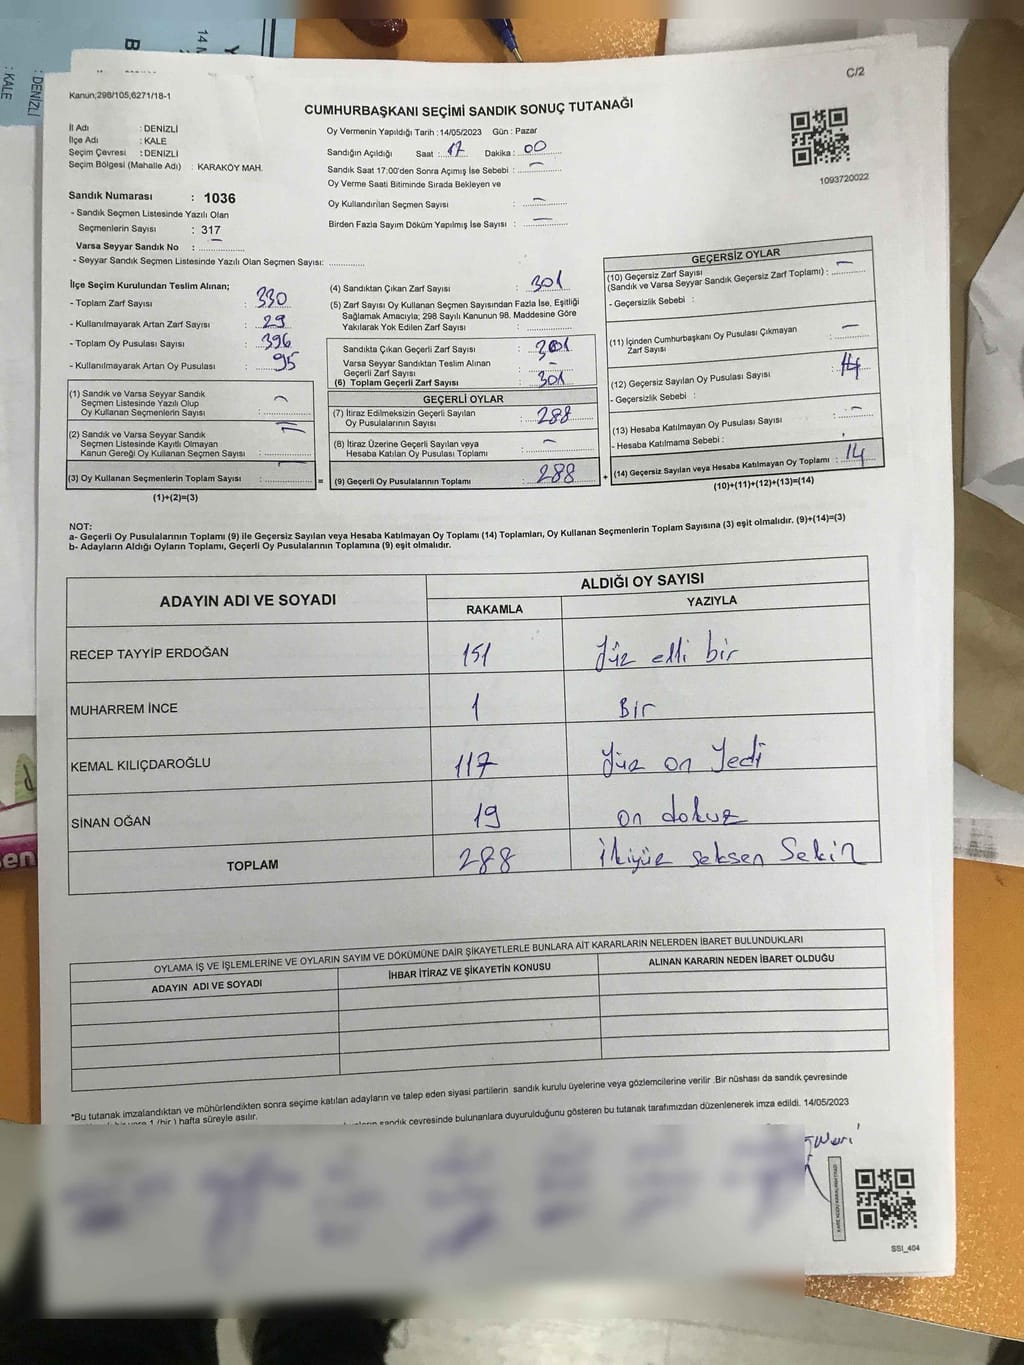 : DENİZLİ
: KALE
14 M
C/2
Kanun;298/105,6271/18-1
CUMHURBAŞKANI SEÇİMİ SANDIK SONUÇ TUTANAĞI
İl Adı : DENİZLİ
İlçe Adı : KALE
Seçim Çevresi : DENİZLİ
Seçim Bölgesi (Mahalle Adı) : KARAKÖY MAH.
Oy Vermenin Yapıldığı Tarih :14/05/2023 Gün : Pazar
Sandığın Açıldığı Saat : 17 Dakika : 00
Sandık Saat 17:00'den Sonra Açımış İse Sebebi : –
Oy Verme Saati Bitiminde Sırada Bekleyen ve
Oy Kullandırılan Seçmen Sayısı : –
Birden Fazla Sayım Döküm Yapılmış İse Sayısı : –
1093720022
Sandık Numarası : 1036
- Sandık Seçmen Listesinde Yazılı Olan
Seçmenlerin Sayısı : 317
Varsa Seyyar Sandık No : –
- Seyyar Sandık Seçmen Listesinde Yazılı Olan Seçmen Sayısı:
İlçe Seçim Kurulundan Teslim Alınan;
- Toplam Zarf Sayısı : 330
- Kullanılmayarak Artan Zarf Sayısı : 29
- Toplam Oy Pusulası Sayısı : 396
- Kullanılmayarak Artan Oy Pusulası : 95
(1) Sandık ve Varsa Seyyar Sandık
Seçmen Listesinde Yazılı Olup
Oy Kullanan Seçmenlerin Sayısı : –
(2) Sandık ve Varsa Seyyar Sandık
Seçmen Listesinde Kayıtlı Olmayan
Kanun Gereği Oy Kullanan Seçmen Sayısı : –
(3) Oy Kullanan Seçmenlerin Toplam Sayısı : –
(1)+(2)=(3)
(4) Sandıktan Çıkan Zarf Sayısı : 301
(5) Zarf Sayısı Oy Kullanan Seçmen Sayısından Fazla İse, Eşitliği
Sağlamak Amacıyla; 298 Sayılı Kanunun 98. Maddesine Göre
Yakılarak Yok Edilen Zarf Sayısı :
Sandıkta Çıkan Geçerli Zarf Sayısı : 301
Varsa Seyyar Sandıktan Teslim Alınan
Geçerli Zarf Sayısı : –
(6) Toplam Geçerli Zarf Sayısı : 301
GEÇERLİ OYLAR
(7) İtiraz Edilmeksizin Geçerli Sayılan
Oy Pusulalarının Sayısı : 288
(8) İtiraz Üzerine Geçerli Sayılan veya
Hesaba Katılan Oy Pusulası Toplamı : –
(9) Geçerli Oy Pusulalarının Toplamı : 288
GEÇERSİZ OYLAR
(10) Geçersiz Zarf Sayısı
(Sandık ve Varsa Seyyar Sandık Geçersiz Zarf Toplamı) : –
- Geçersizlik Sebebi :
(11) İçinden Cumhurbaşkanı Oy Pusulası Çıkmayan
Zarf Sayısı : –
(12) Geçersiz Sayılan Oy Pusulası Sayısı : 14
- Geçersizlik Sebebi :
(13) Hesaba Katılmayan Oy Pusulası Sayısı : –
- Hesaba Katılmama Sebebi :
(14) Geçersiz Sayılan veya Hesaba Katılmayan Oy Toplamı : 14
(10)+(11)+(12)+(13)=(14)
NOT:
a- Geçerli Oy Pusulalarının Toplamı (9) ile Geçersiz Sayılan veya Hesaba Katılmayan Oy Toplamı (14) Toplamları, Oy Kullanan Seçmenlerin Toplam Sayısına (3) eşit olmalıdır. (9)+(14)=(3)
b- Adayların Aldığı Oyların Toplamı, Geçerli Oy Pusulalarının Toplamına (9) eşit olmalıdır.
ADAYIN ADI VE SOYADI
ALDIĞI OY SAYISI
RAKAMLA YAZIYLA
RECEP TAYYİP ERDOĞAN 151 Yüz elli bir
MUHARREM İNCE 1 Bir
KEMAL KILIÇDAROĞLU 117 Yüz on Yedi
SİNAN OĞAN 19 on dokuz
TOPLAM 288 İkiyüz seksen Sekiz
OYLAMA İŞ VE İŞLEMLERİNE VE OYLARIN SAYIM VE DÖKÜMÜNE DAİR ŞİKAYETLERLE BUNLARA AİT KARARLARIN NELERDEN İBARET BULUNDUKLARI
ADAYIN ADI VE SOYADI İHBAR İTİRAZ VE ŞİKAYETİN KONUSU ALINAN KARARIN NEDEN İBARET OLDUĞU
*Bu tutanak imzalandıktan ve mühürlendikten sonra seçime katılan adayların ve talep eden siyasi partilerin sandık kurulu üyelerine veya gözlemcilerine verilir .Bir nüshası da sandık çevresinde
1 (bir) hafta süreyle asılır.
sandık çevresinde bulunanlara duyurulduğunu gösteren bu tutanak tarafımızdan düzenlenerek imza edildi. 14/05/2023
SSI_404